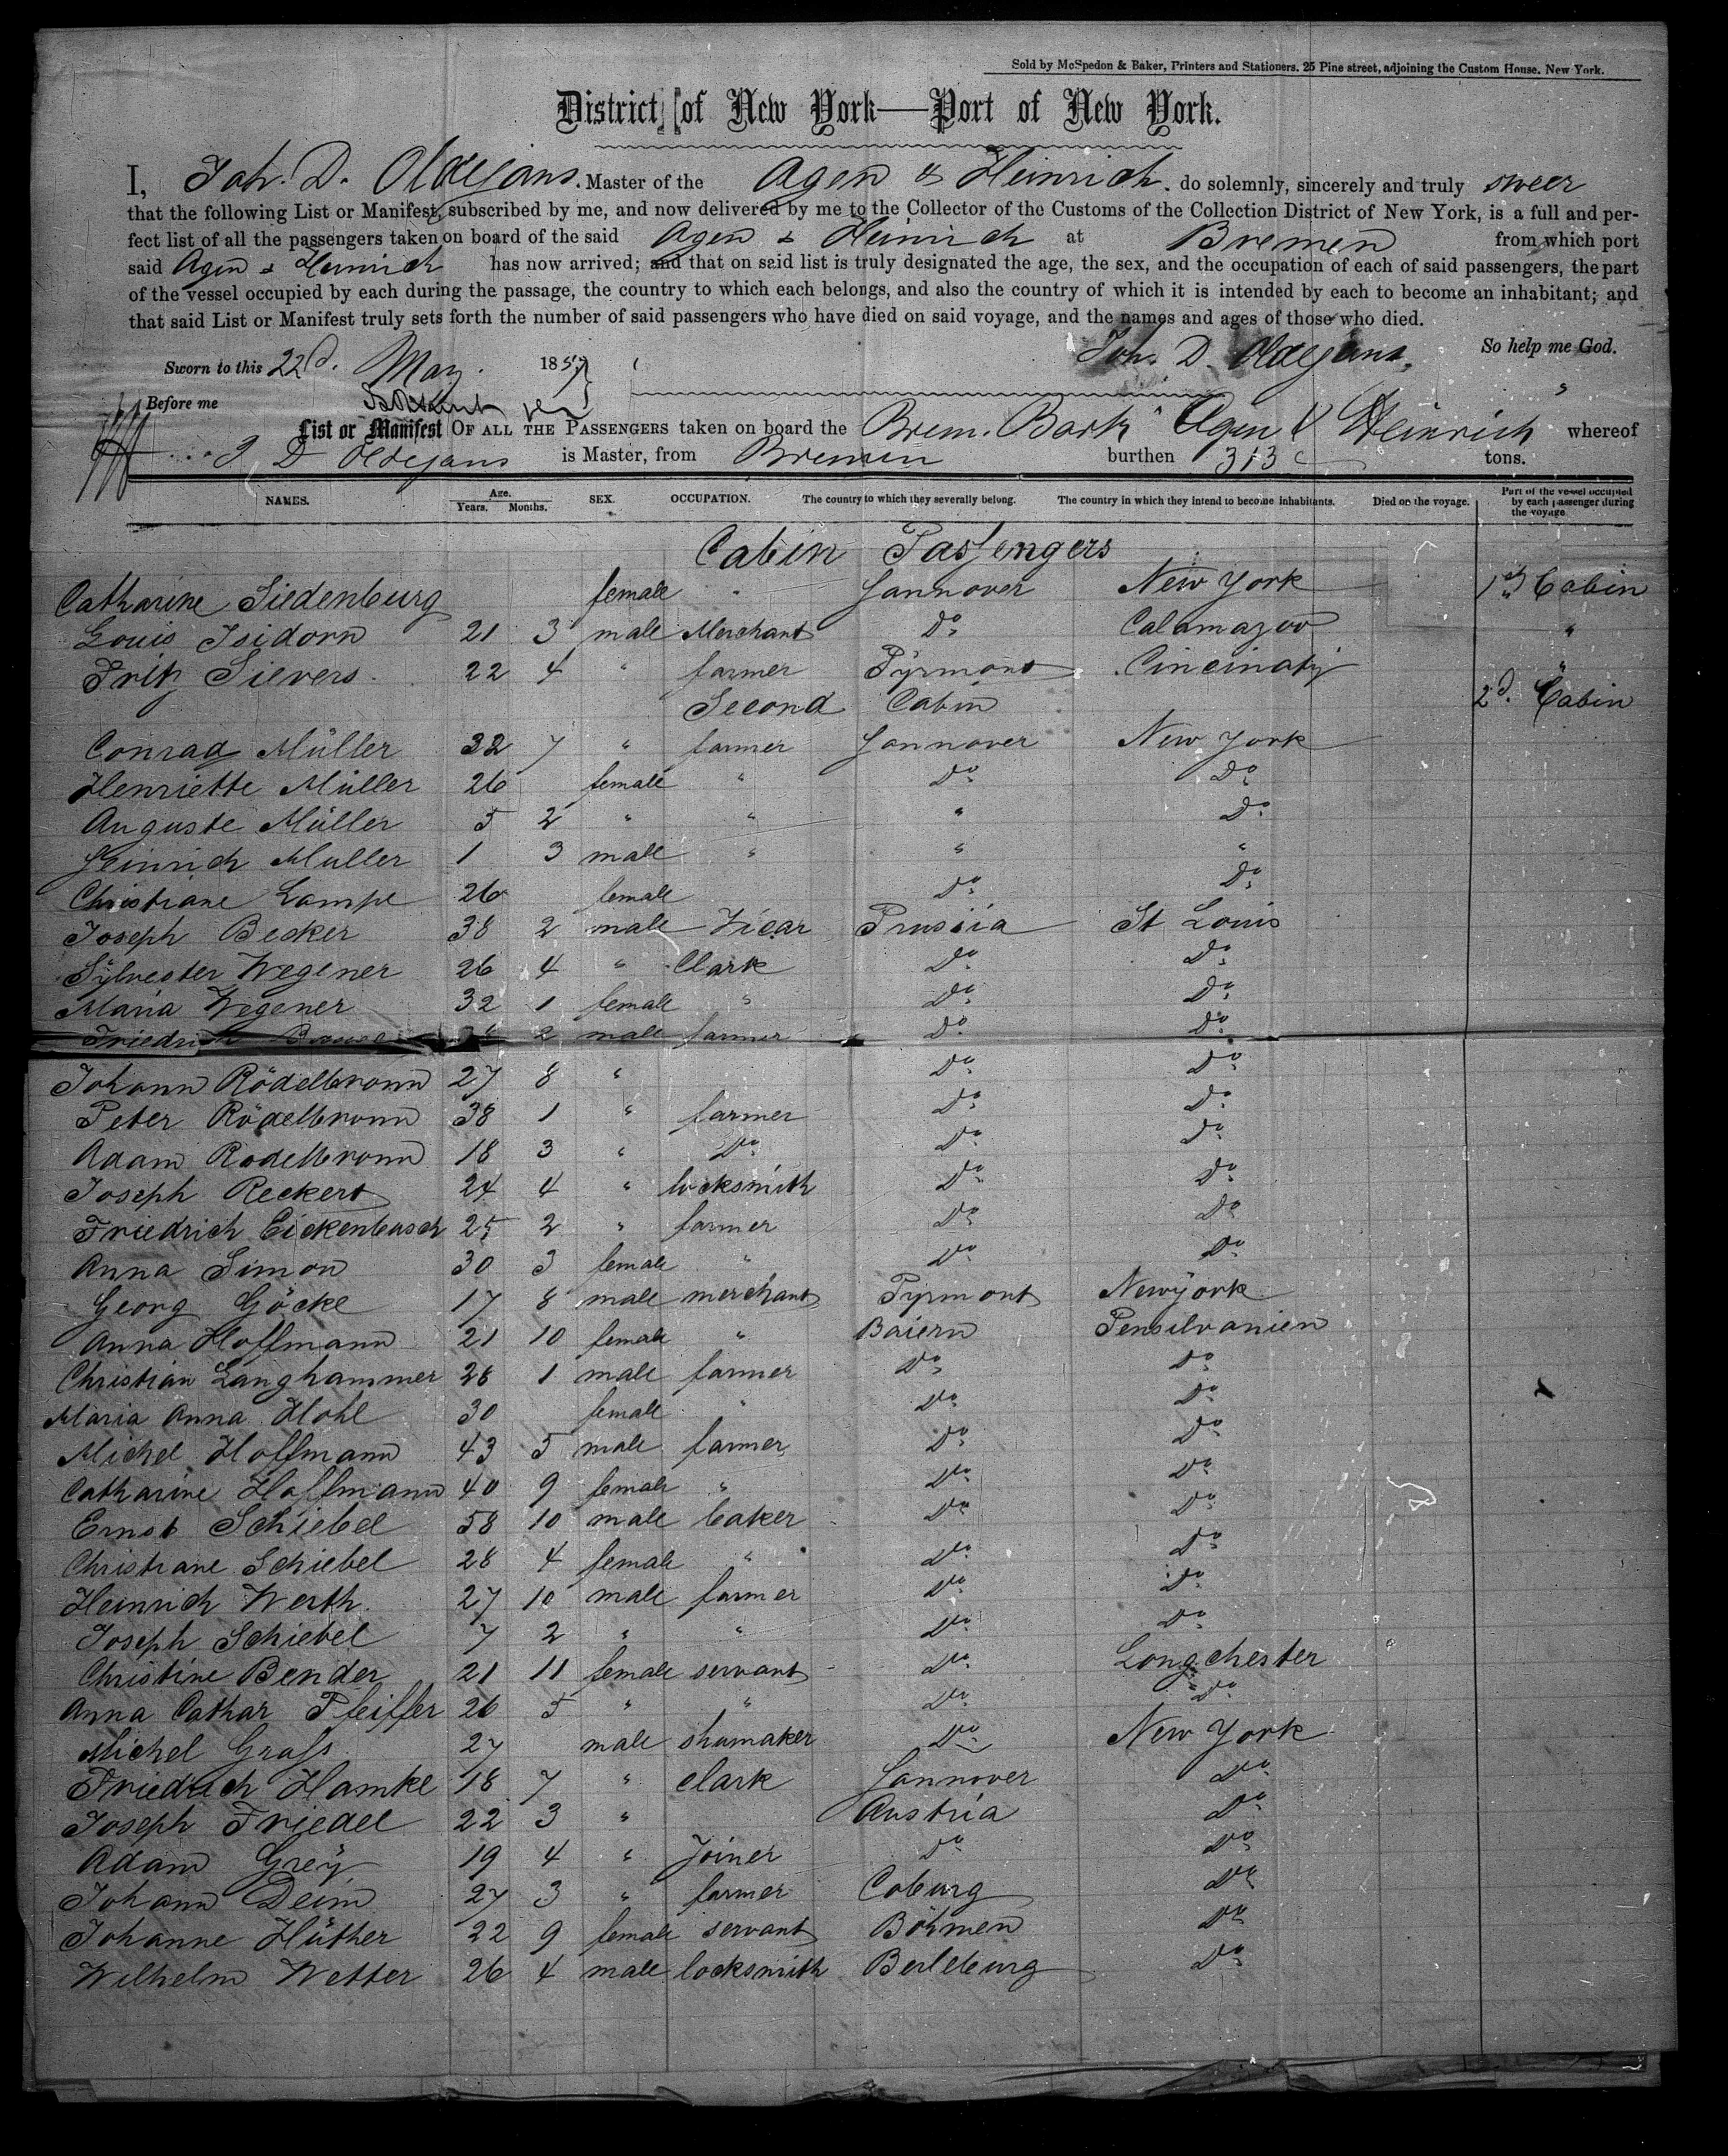 Sold by McSpedon & Baker, Printers and Stationers. 25 Pine street, adjoining the Custom House. New York.
District of New York—Port of New York.
I, Joh. D. Oldejans. Master of the Agen & Heinrich. do solemnly, sincerely and truly sweer
that the following List or Manifest, subscribed by me, and now delivered by me to the Collector of the Customs of the Collection District of New York, is a full and per-
fect list of all the passengers taken on board of the said Agen & Heinrich at Bremen from which port
said Agen & Heinrich has now arrived; and that on said list is truly designated the age, the sex, and the occupation of each of said passengers, the part
of the vessel occupied by each during the passage, the country to which each belongs, and also the country of which it is intended by each to become an inhabitant; and
that said List or Manifest truly sets forth the number of said passengers who have died on said voyage, and the names and ages of those who died.
Joh. D. Oldejans. So help me God.
Sworn to this 22d. May. 1857
Before me
List or Manifest OF ALL THE PASSENGERS taken on board the Brem. Bark Agen & Heinrich whereof
J D Oldejans is Master, from Bremen burthen 313 tons.
NAMES. Age. Years. Months. SEX. OCCUPATION. The country to which they severally belong. The country in which they intend to become inhabitants. Died on the voyage. Part of the vessel occupied by each passenger during the voyage
Cabin Passengers
Catharine Siedenburg female " Hannover New York 1st Cabin
Louis Isidorn 21 3 male Merchant Do Calamazoo "
Fritz Sievers. 22 4 " farmer Pyrmont Cincinaty "
Second Cabin 2d. Cabin
Conrad Müller 32 7 " farmer Hannover New York
Henriette Müller 26 female " Do Do
Auguste Müller 5 2 " " " Do
Heinrich Muller 1 3 male " " "
Christiane Lampe 26 female Do Do
Joseph Becker 38 2 male Vicar Prusiia St Louis
Sylvester Wegener 26 4 " Clark Do Do
Maria Wegener 32 1 female " Do Do
Friedrich 2 male farmer Do Do
Johann Rödelbronn 27 8 " Do Do
Peter Rödelbronn 38 1 " farmer Do Do
Adam Rodelbronn 18 3 " Do Do Do
Joseph Reckert 24 4 " locksmith Do Do
Friedrich Eickenbusch 25 2 " farmer Do Do
Anna Simon 30 3 female " Do Do
Georg Göcke 17 8 male merchant Pyrmont Newyork
Anna Hoffmann 21 10 female " Baiern Pensilvanien
Christian Langhammer 28 1 male farmer Do Do
Maria Anna Hohl 30 female " Do Do
Michel Hoffmann 43 5 male farmer Do Do
Catharine Hoffmann 40 9 female " Do Do
Ernst Schiebel 58 10 male baker Do Do
Christiane Schiebel 28 4 female " Do Do
Heinrich Werth. 27 10 male farmer Do Do
Joseph Schiebel 7 2 " " Do Do
Christine Bender 21 11 female servant Do Longchester
Anna Cathar Pfeiffer 26 5 " " Do Do
Michel Grass 27 male shumaker Do New York
Friedrich Hamke 18 7 " clark Hannover Do
Joseph Friedel 22 3 " Austria Do
Adam Greÿ 19 4 " Joiner Do Do
Johann Deim 27 3 " farmer Coburg Do
Johanne Hüther 22 9 female servant Böhmen Do
Wilhelm Wetter 26 4 male locksmith Berleburg Do